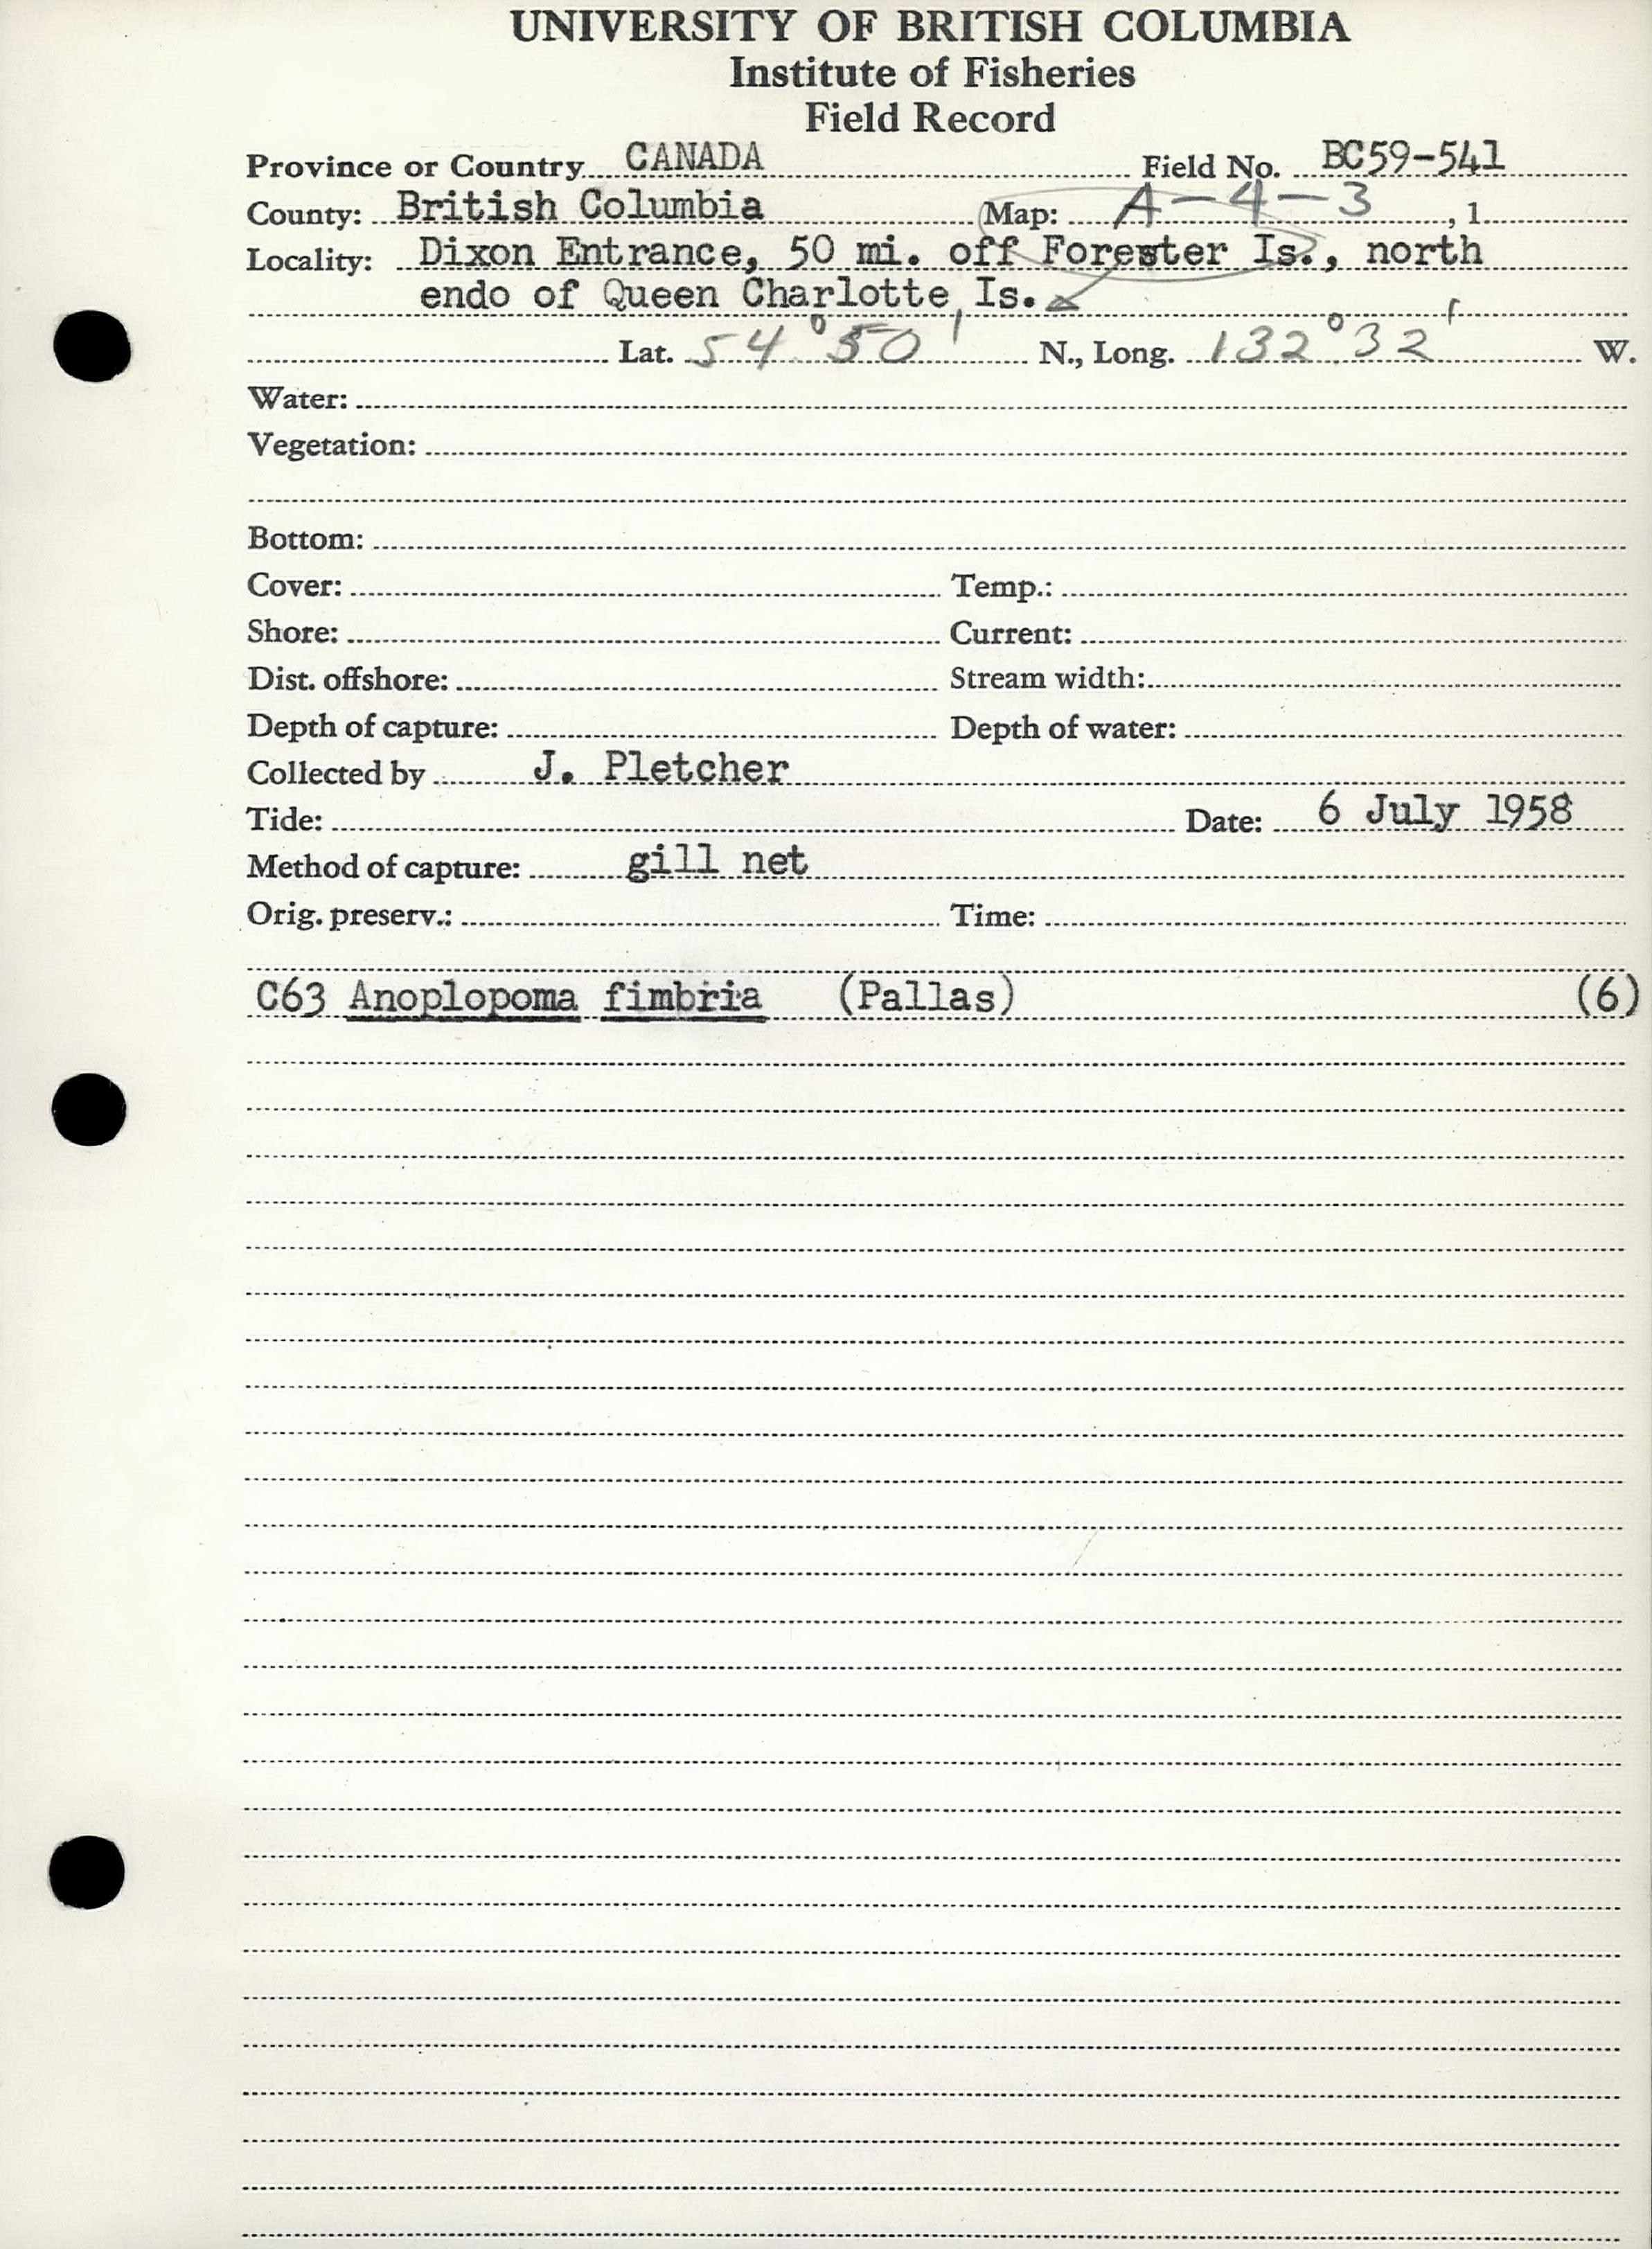 UNIVERSITY OF BRITISH COLUMBIA
Institute of Fisheries
Field Record
Province or Country CANADA Field No. BC59-541
County: British Columbia Map: A-4-3, 1
Locality: Dixon Entrance, 50 mi. off Forester Is., north
endo of Queen Charlotte Is.
Lat. 54°50' N., Long. 132°32' W.
Water:
Vegetation:
Bottom:
Cover: Temp.:
Shore: Current:
Dist. offshore: Stream width:
Depth of capture: Depth of water:
Collected by J. Pletcher
Tide: Date: 6 July 1958
Method of capture: gill net
Orig. preserv.: Time:
C63 Anoplopoma fimbria (Pallas) (6)